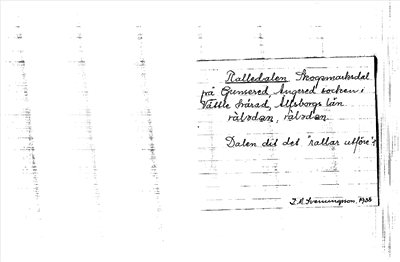 Ralledalen Skogsmarksdal
på Gunsered, Angered socken,
Vättle härad, Älfsborgs län.
Dalen dit det "rallar utför".
J. A. Svenungsson, 1938